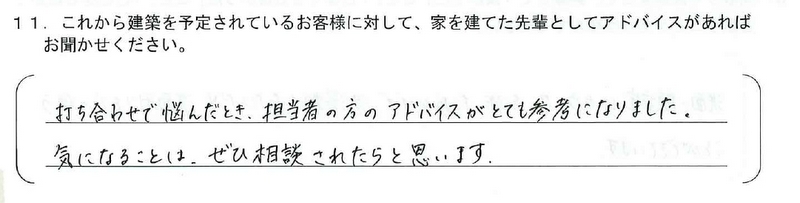 １１．これから建築を予定されているお客様に対して、家を建てた先輩としてアドバイスがあれば
お聞かせください。
打ち合わせで悩んだとき、担当者の方のアドバイスがとても参考になりました。
気になることは、ぜひ相談されたらと思います.